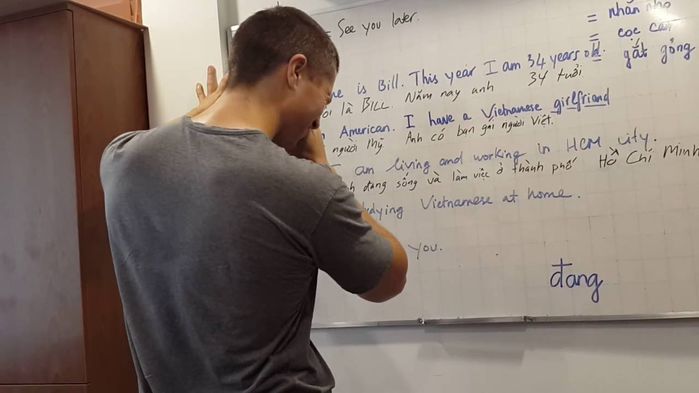 = See you later.
= nhăn nhó
= cọc cằn
gắt gỏng
is Bill. This year I am 34 years old.
là BILL. Năm nay anh 34 tuổi
American. I have a Vietnamese girlfriend
người Mỹ Anh có bạn gái người Việt.
am living and working in HCM city.
đang sống và làm việc ở thành phố Hồ Chí Minh
Vietnamese at home.
you.
đang